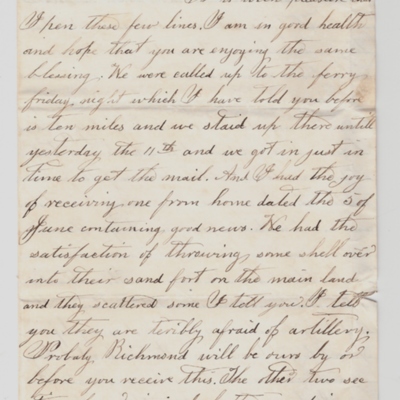 is with pleasure that
I pen these few lines. I am in good health
and hope that you are enjoying the same
blessing. We were called up to the ferry
friday night which I have told you before
is ten miles and we staid up there untill
yesterday the 11th and we got in just in
time to get the mail. And I had the joy
of receiving one from home dated the 5 of
June containing good news. We had the
satisfaction of threwing some shell over
into their sand fort on the main land
and they scattered some I tell you. I tell
you they are teribly afraid of artillery.
Probaly Richmond will be ours by or
before you receive this. The other two sec